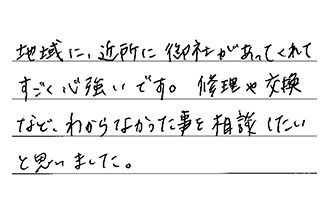 地域に、近所に御社があってくれて
すごく心強いです。修理や交換
など、わからなかった事を相談したい
と思いました。